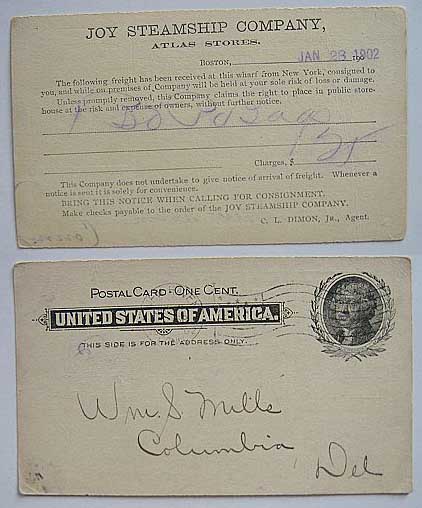 JOY STEAMSHIP COMPANY,
ATLAS STORES.
BOSTON, JAN 28 1902 190
The following freight has been received at this wharf from New York, consigned to
you, and while on premises of Company will be held at your sole risk of loss or damage.
Unless promptly removed, this Company claims the right to place in public store-
house at the risk and expense of owners, without further notice.
1
Charges, $
This Company does not undertake to give notice of arrival of freight. Whenever a
notice is sent it is solely for convenience.
BRING THIS NOTICE WHEN CALLING FOR CONSIGNMENT.
Make checks payable to the order of the JOY STEAMSHIP COMPANY.
C. L. DIMON, JR., Agent.
POSTAL CARD - ONE CENT.
UNITED STATES OF AMERICA.
THIS SIDE IS FOR THE ADDRESS ONLY.
Wm. S. Mills
Columbia
Del